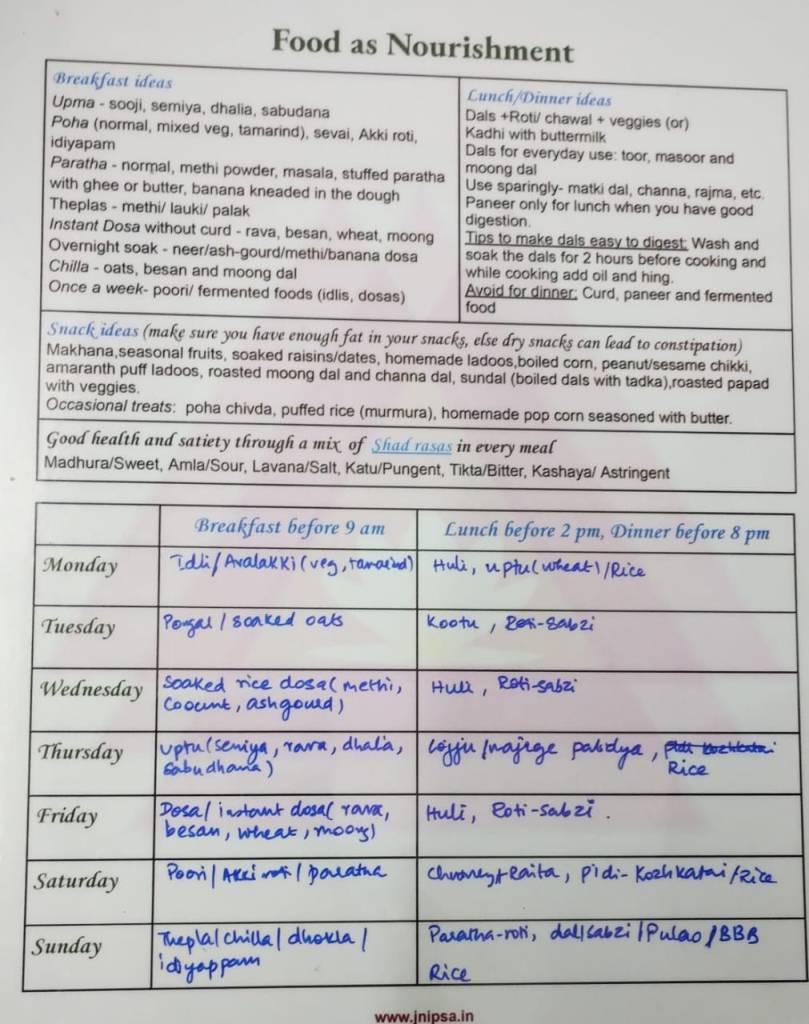 Food as Nourishment
Breakfast ideas
Upma - sooji, semiya, dhalia, sabudana
Poha (normal, mixed veg, tamarind), sevai, Akki roti,
idiyapam
Paratha - normal, methi powder, masala, stuffed paratha
with ghee or butter, banana kneaded in the dough
Theplas - methi/ lauki/ palak
Instant Dosa without curd - rava, besan, wheat, moong
Overnight soak - neer/ash-gourd/methi/banana dosa
Chilla - oats, besan and moong dal
Once a week- poori/ fermented foods (idlis, dosas)
Lunch/Dinner ideas
Dals +Roti/ chawal + veggies (or)
Kadhi with buttermilk
Dals for everyday use: toor, masoor and
moong dal
Use sparingly- matki dal, channa, rajma, etc.
Paneer only for lunch when you have good
digestion.
Tips to make dals easy to digest: Wash and
soak the dals for 2 hours before cooking and
while cooking add oil and hing.
Avoid for dinner: Curd, paneer and fermented
food
Snack ideas (make sure you have enough fat in your snacks, else dry snacks can lead to constipation)
Makhana,seasonal fruits, soaked raisins/dates, homemade ladoos,boiled corn, peanut/sesame chikki,
amaranth puff ladoos, roasted moong dal and channa dal, sundal (boiled dals with tadka),roasted papad
with veggies.
Occasional treats: poha chivda, puffed rice (murmura), homemade pop corn seasoned with butter.
Good health and satiety through a mix of Shad rasas in every meal
Madhura/Sweet, Amla/Sour, Lavana/Salt, Katu/Pungent, Tikta/Bitter, Kashaya/ Astringent
Breakfast before 9 am
Lunch before 2 pm, Dinner before 8 pm
Monday
Idli/ Avalakki (veg, tamarind)
Huli, uptu(wheat)/Rice
Tuesday
Pongal / soaked oats
Kootu , Roti-Sabzi
Wednesday
Soaked rice dosa( methi,
Coconut, ashgourd)
Huli , Roti-sabzi
Thursday
uptu(semiya, rava, dhalia,
Sabudhana)
Gojju /majjige palidya ,
Rice
Friday
Dosa/ instant dosa( rava,
besan, wheat, moong)
Huli, Roti-sabzi .
Saturday
Poori/ Akki roti / paratha
Raita, Pidi-Kozhkatai/Rice
Sunday
Thepla/chilla/ dhokla/
idiyappam
Paratha-roti, dal/sabzi/Pulao/BBB
Rice
www.jnipsa.in